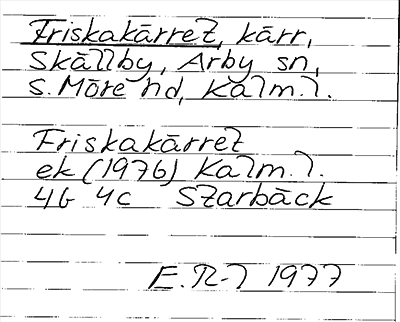 Friskakärret, kärr,
Skällby, Arby sn,
S. Möre hd, Kalm. l.
Friskakärret
ek (1976) Kalm. l.
4G 4c Starbäck
E. R-l 1977